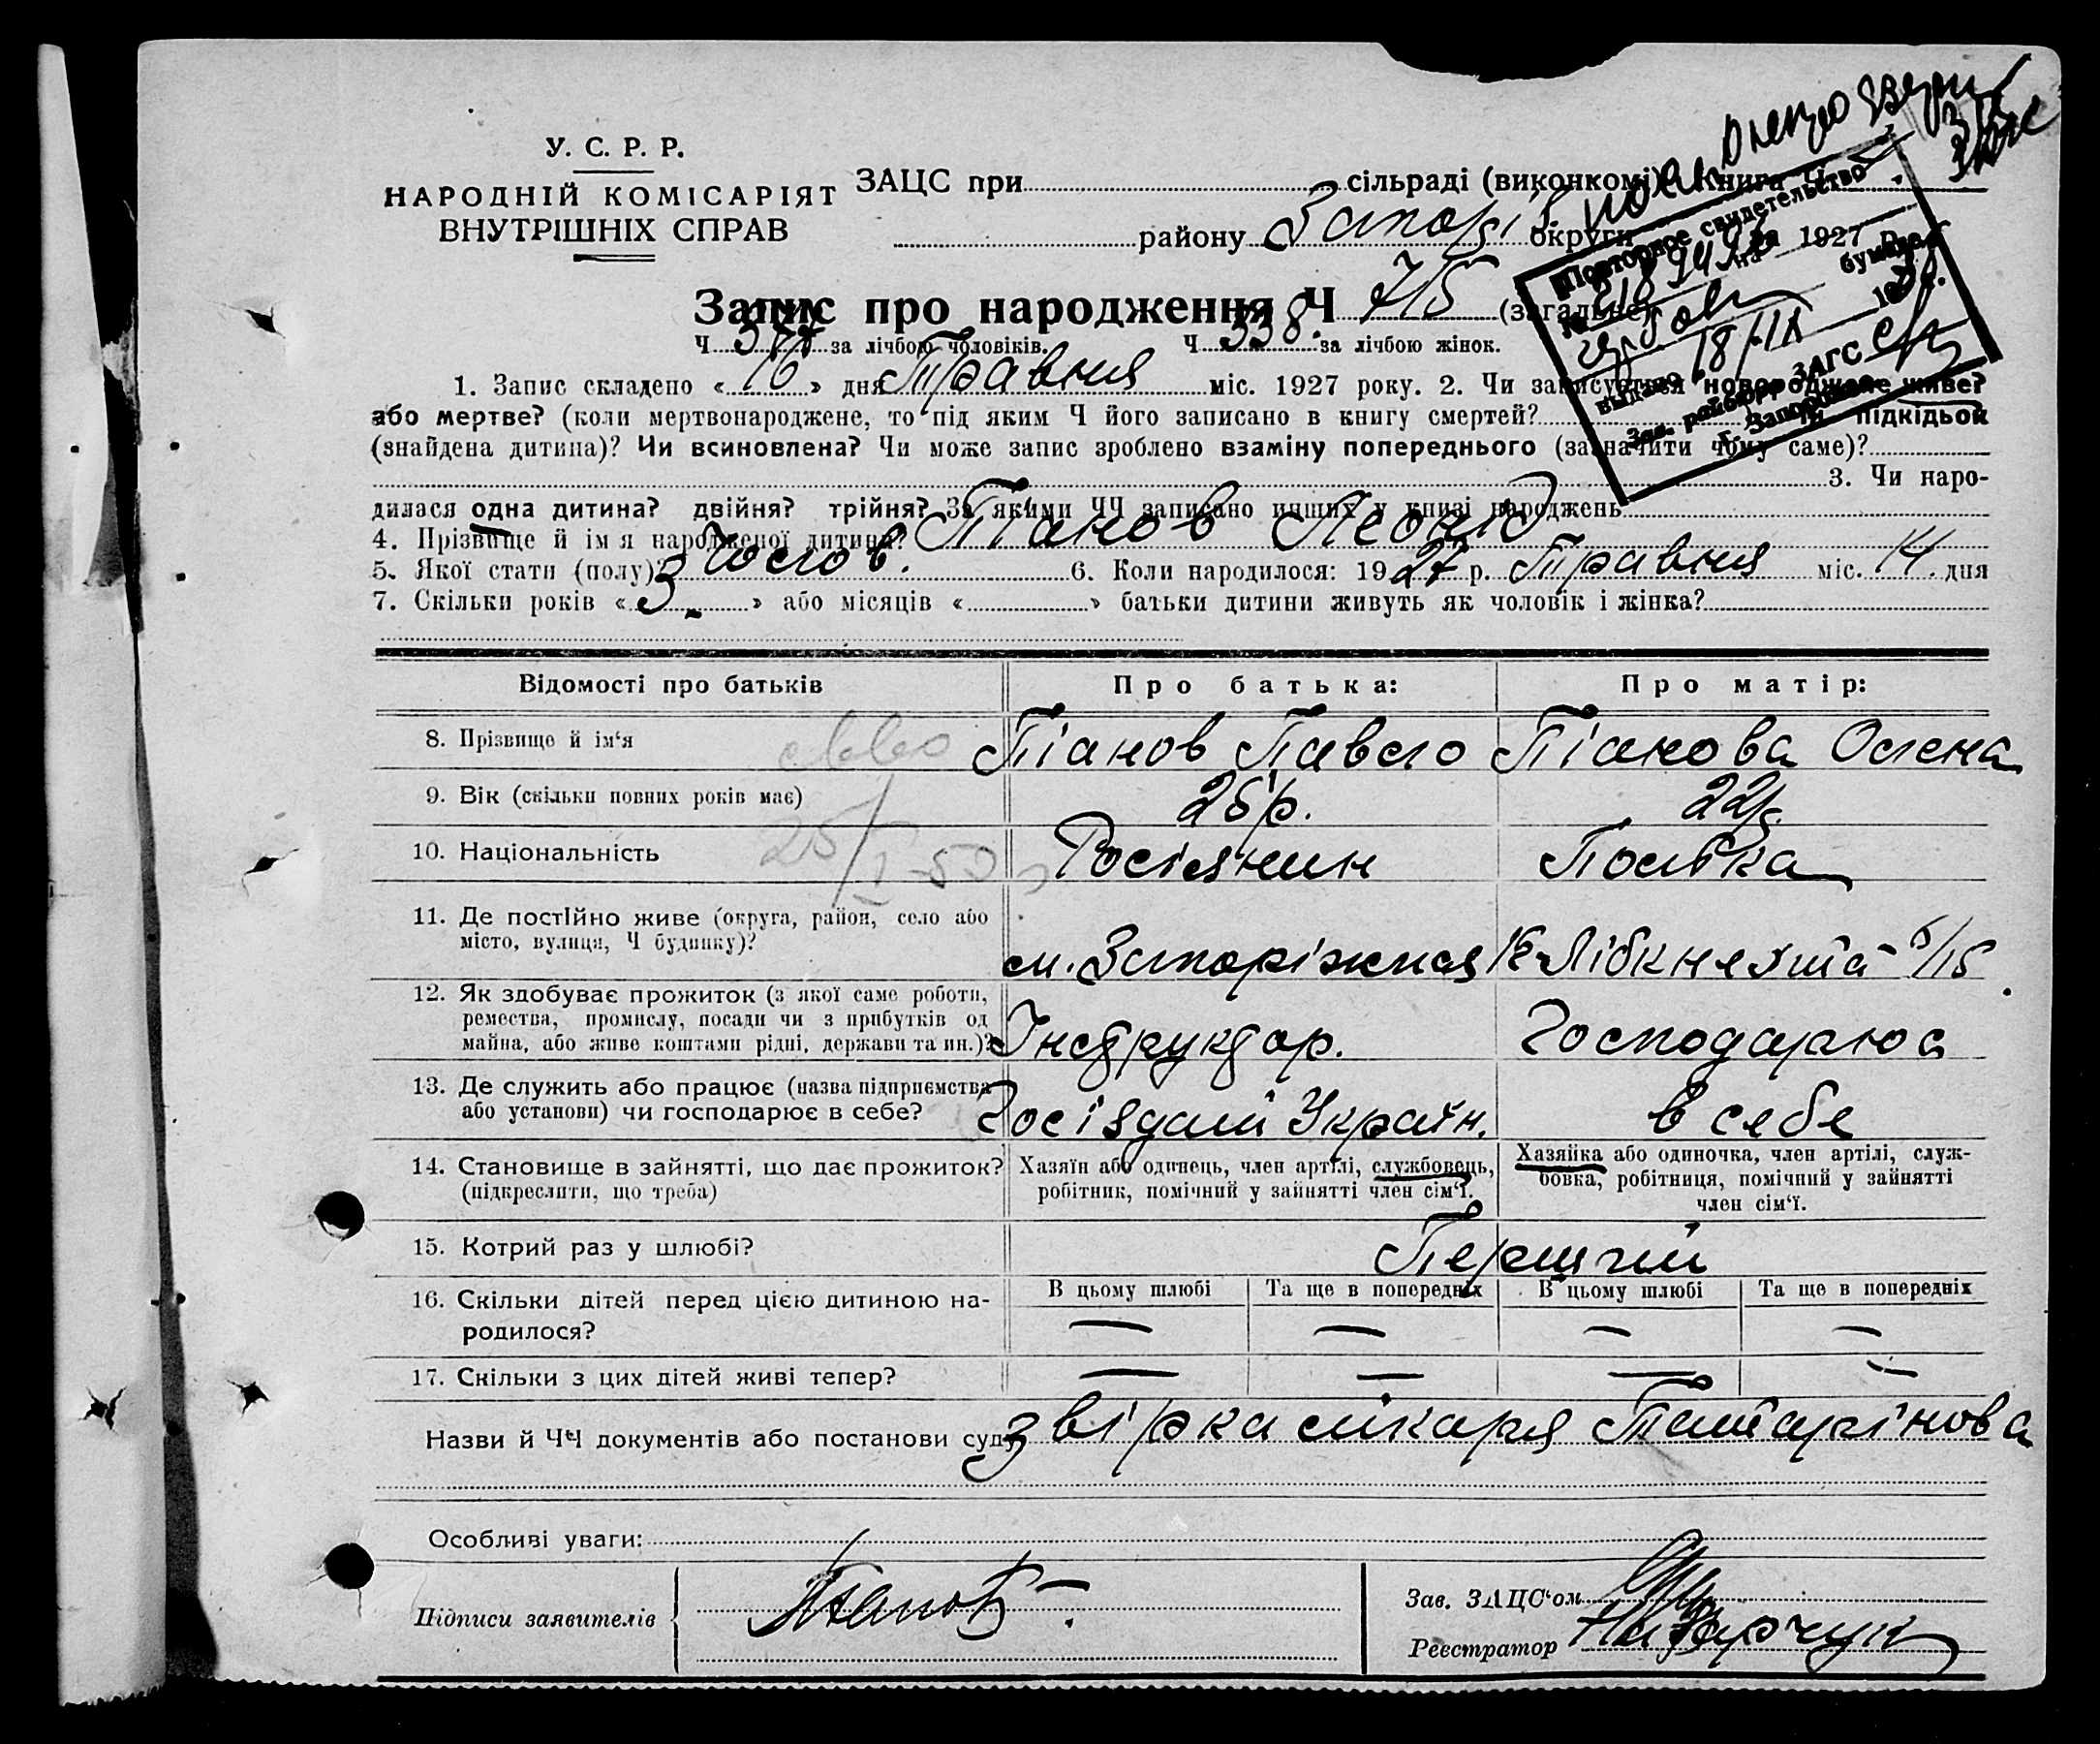 У. С. Р. Р.
НАРОДНІЙ КОМІСАРІЯТ
ВНУТРІШНІХ СПРАВ
ЗАЦС при сільраді (виконкомі) Книга Ч
району Запоріз. округи на 1927 р.
Повторное свидетельство
выдано 18/IX
Зав. райбюро ЗАГС
г. Запорожье
Запис про народження Ч 715 (загальне)
Ч за лічбою чоловіків. Ч 338. за лічбою жінок.
1. Запис складено « 16 » дня Травня міс. 1927 року. 2. Чи записується новороджене живе?
або мертве? (коли мертвонароджене, то під яким Ч його записано в книгу смертей? Чи підкідьок
(знайдена дитина)? Чи всиновлена? Чи може запис зроблено взаміну попереднього (зазначити чому саме)?
3. Чи наро-
дилася одна дитина? двійня? трійня? За якими ЧЧ записано инших у книзі народжень
4. Прізвище й ім я народженої дитини? Піанов Леонід
5. Якої стати (полу)? Чолов. 6. Коли народилося: 1927 р. Травня міс. 14. дня
7. Скільки років « 3 » або місяців « » батьки дитини живуть як чоловік і жінка?
Відомості про батьків Про батька: Про матір:
8. Прізвище й ім‘я Піанов Павло Піанова Олена
9. Вік (скільки повних років має) 26 р. 22 р.
10. Національність Росіянин Полька
11. Де постійно живе (округа, район, село або
місто, вулиця, Ч будинку)? м. Запоріжжя К-Лібкнехта 6/15
12. Як здобуває прожиток (з якої саме роботи,
ремества, промислу, посади чи з прибутків од
майна, або живе коштами рідні, держави та ин.)? Інструктор. Господарює
13. Де служить або працює (назва підприємства
або установи) чи господарює в себе? Україн. в себе
14. Становище в зайнятті, що дає прожиток?
(підкреслити, що треба)
Хазяїн або одинець, член артілі, службовець,
робітник, помічний у зайнятті член сім‘ї.
Хазяйка або одиночка, член артілі, служ-
бовка, робітниця, помічний у зайнятті
член сім‘ї.
15. Котрий раз у шлюбі? Перший
16. Скільки дітей перед цією дитиною на-
родилося?
В цьому шлюбі Та ще в попередніх В цьому шлюбі Та ще в попередніх
— — — —
17. Скільки з цих дітей живі тепер? — — — —
Назви й ЧЧ документів або постанови суду звірка лікаря Татарінова
Особливі уваги:
Підписи заявителів Піанов
Зав. ЗАЦС‘ом
Реєстратор Назарчук